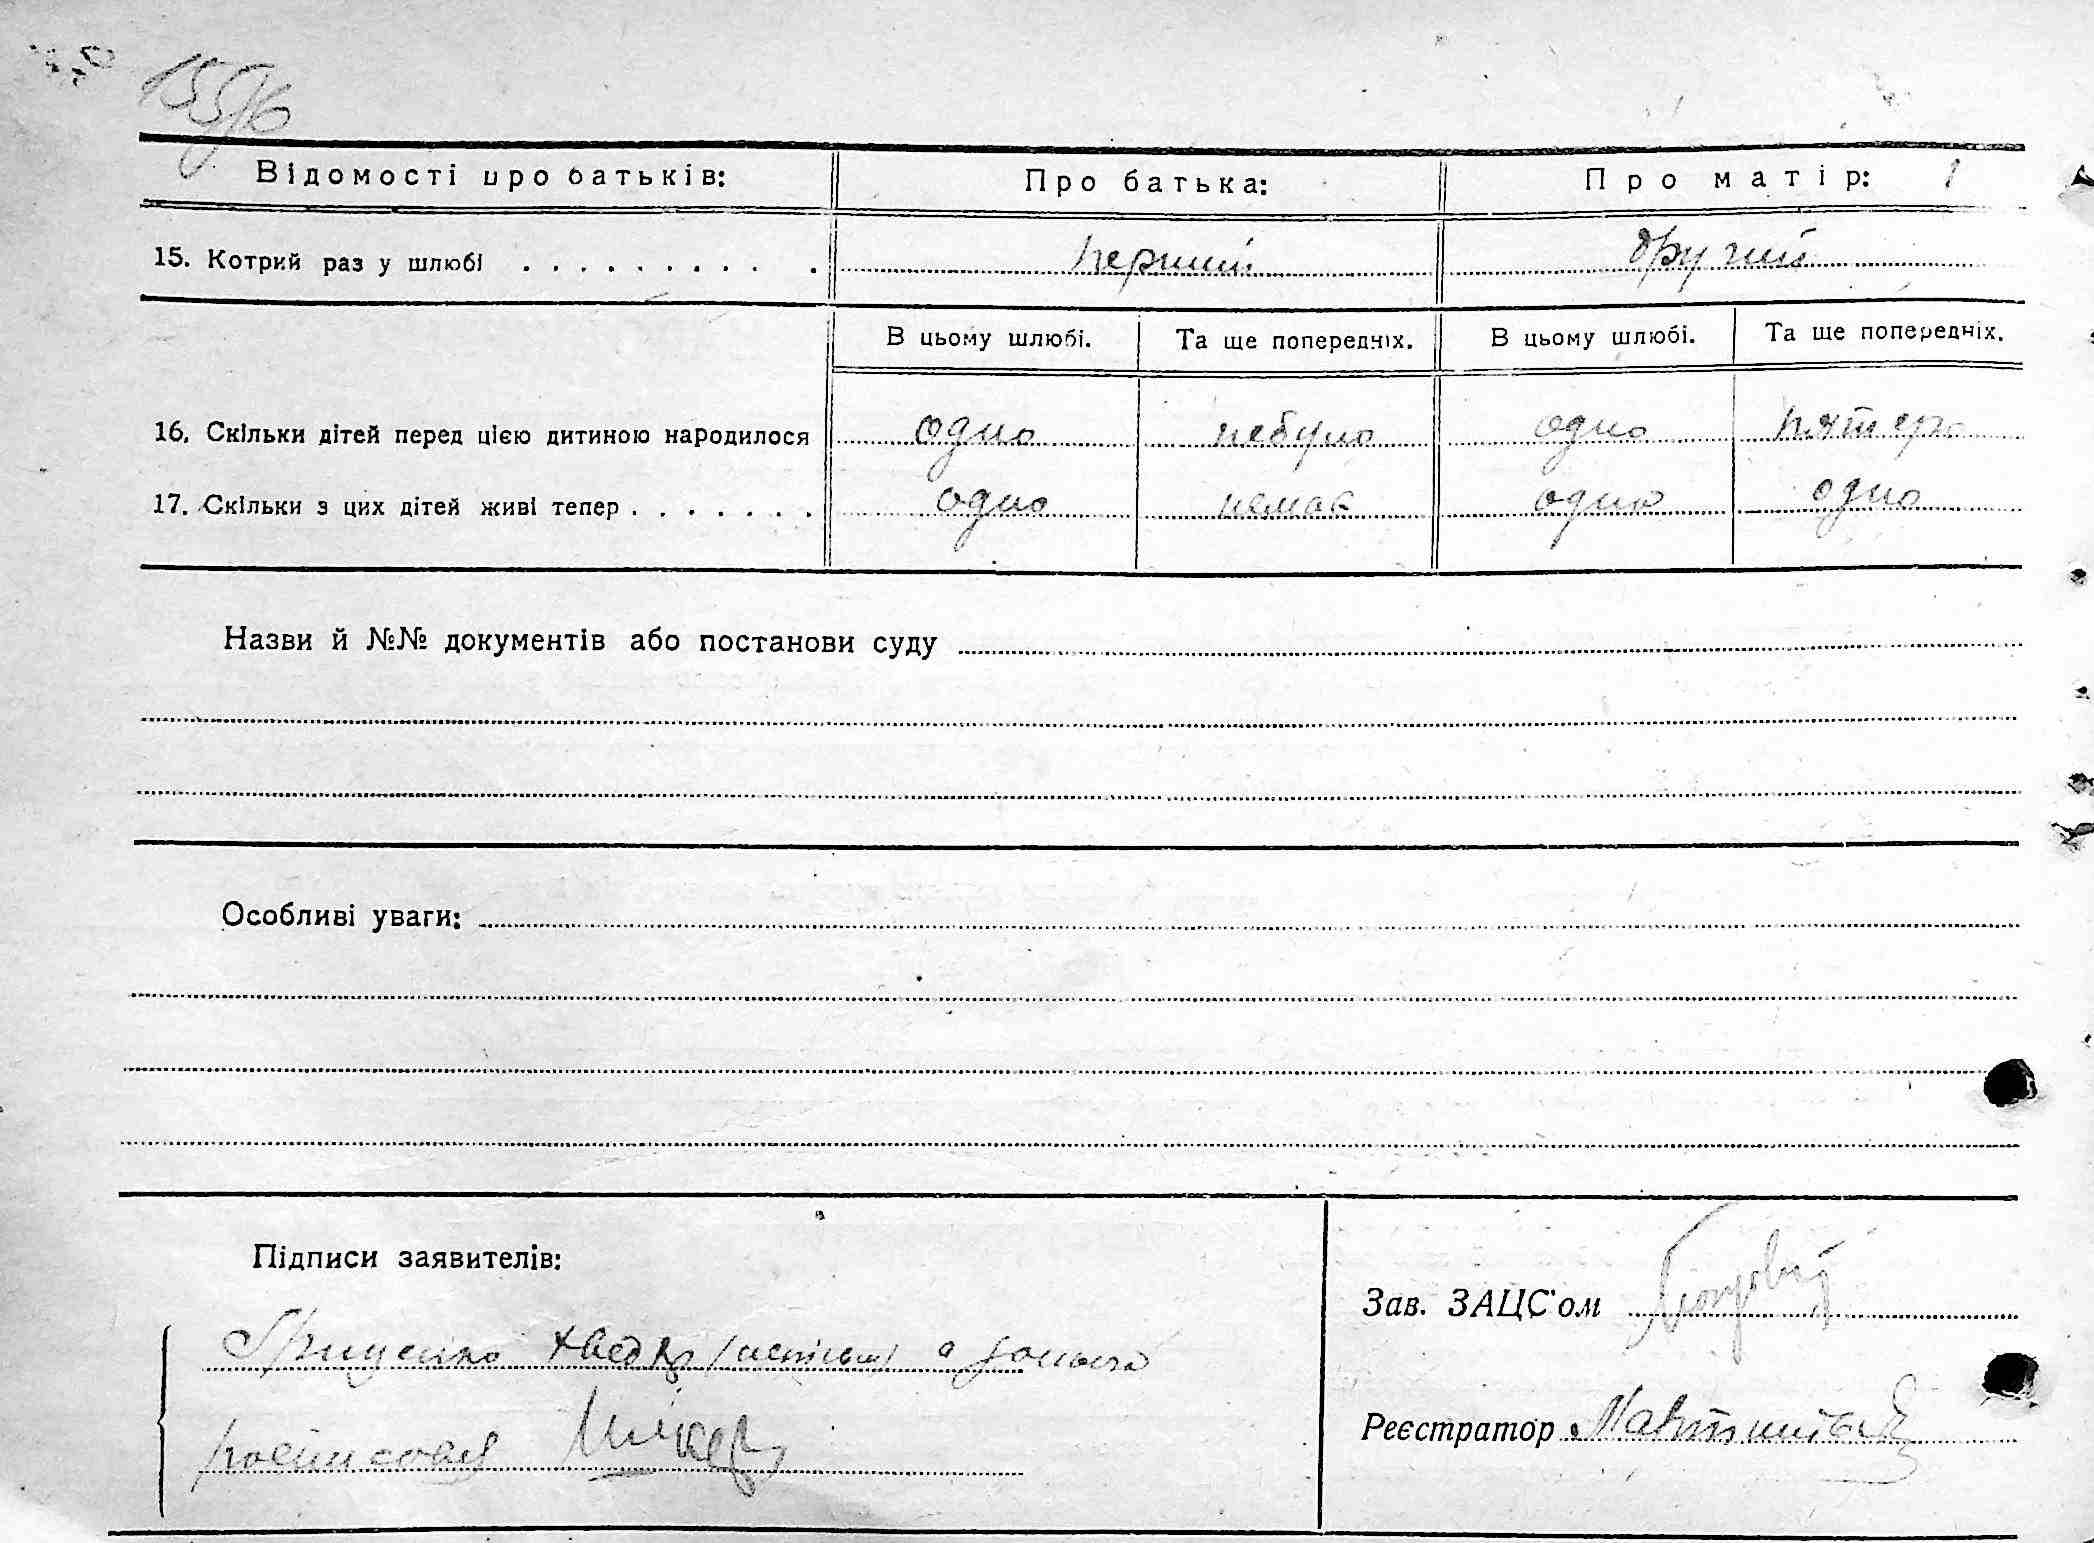 Відомості про батьків: Про батька: Про матір:
15. Котрий раз у шлюбі . . . . . . . . . . . перший другий
В цьому шлюбі. Та ще попередніх. В цьому шлюбі. Та ще попередніх.
16. Скільки дітей перед цією дитиною народилося одно небуло одно пятеро
17. Скільки з цих дітей живі тепер . . . . . . . одно немає одно одно
Назви й №№ документів або постанови суду
Особливі уваги:
Підписи заявителів:
Зав. ЗАЦС'ом
Гриценко Хведір
Реєстратор